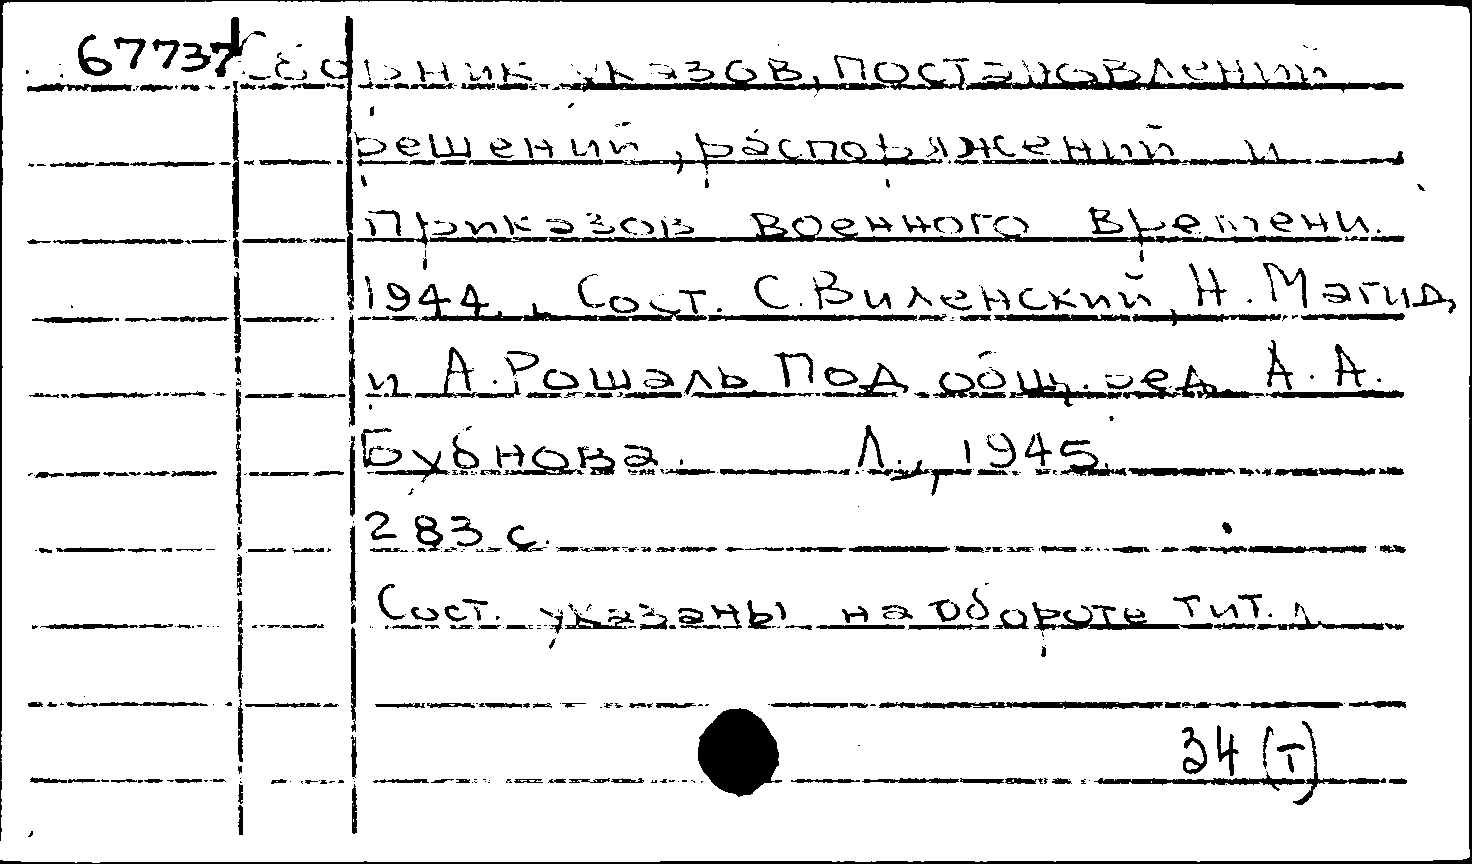 67737 Сборник указов, постановлений
решений, распоряжений и
приказов военного времени.
1944. Сост. С. Виленский, Н. Магид,
и А. Рошаль. Под общ. ред. А. А.
Бубнова. Л., 1945.
283 с.
Сост. указаны на обороте тит. л
34 (Т)